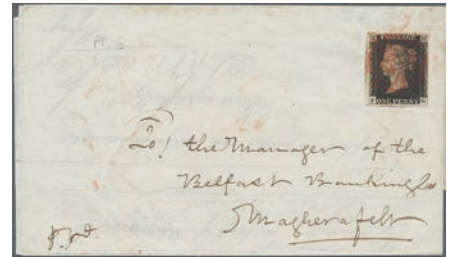 Pl. 6
POSTAGE
ONE PENNY
To! the Manager of the
Belfast Banking Co
Magherafelt